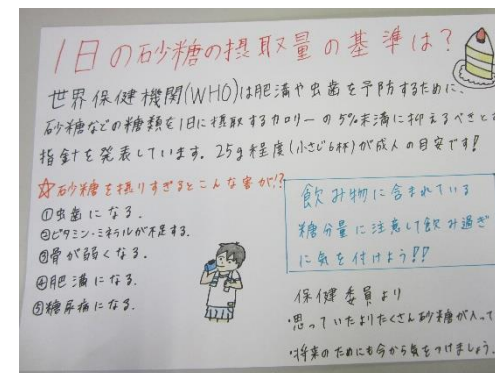 1日の砂糖の摂取量の基準は?
世界保健機関(WHO)は肥満や虫歯を予防するために、
砂糖などの糖類を1日に摂取するカロリーの5%未満に抑えるべきとす
指針を発表しています。25g程度(小さじ6杯)が成人の目安です!
☆砂糖を摂りすぎるとこんな害が!?
①虫歯になる.
②ビタミン・ミネラルが不足する.
③骨が弱くなる.
④肥満になる.
⑤糖尿病になる.
飲み物に含まれている
糖分量に注意して飲み過ぎ
に気を付けよう!!
保健委員より
・思っていたよりたくさん砂糖が入って
・将来のためにも今から気をつけましょう.